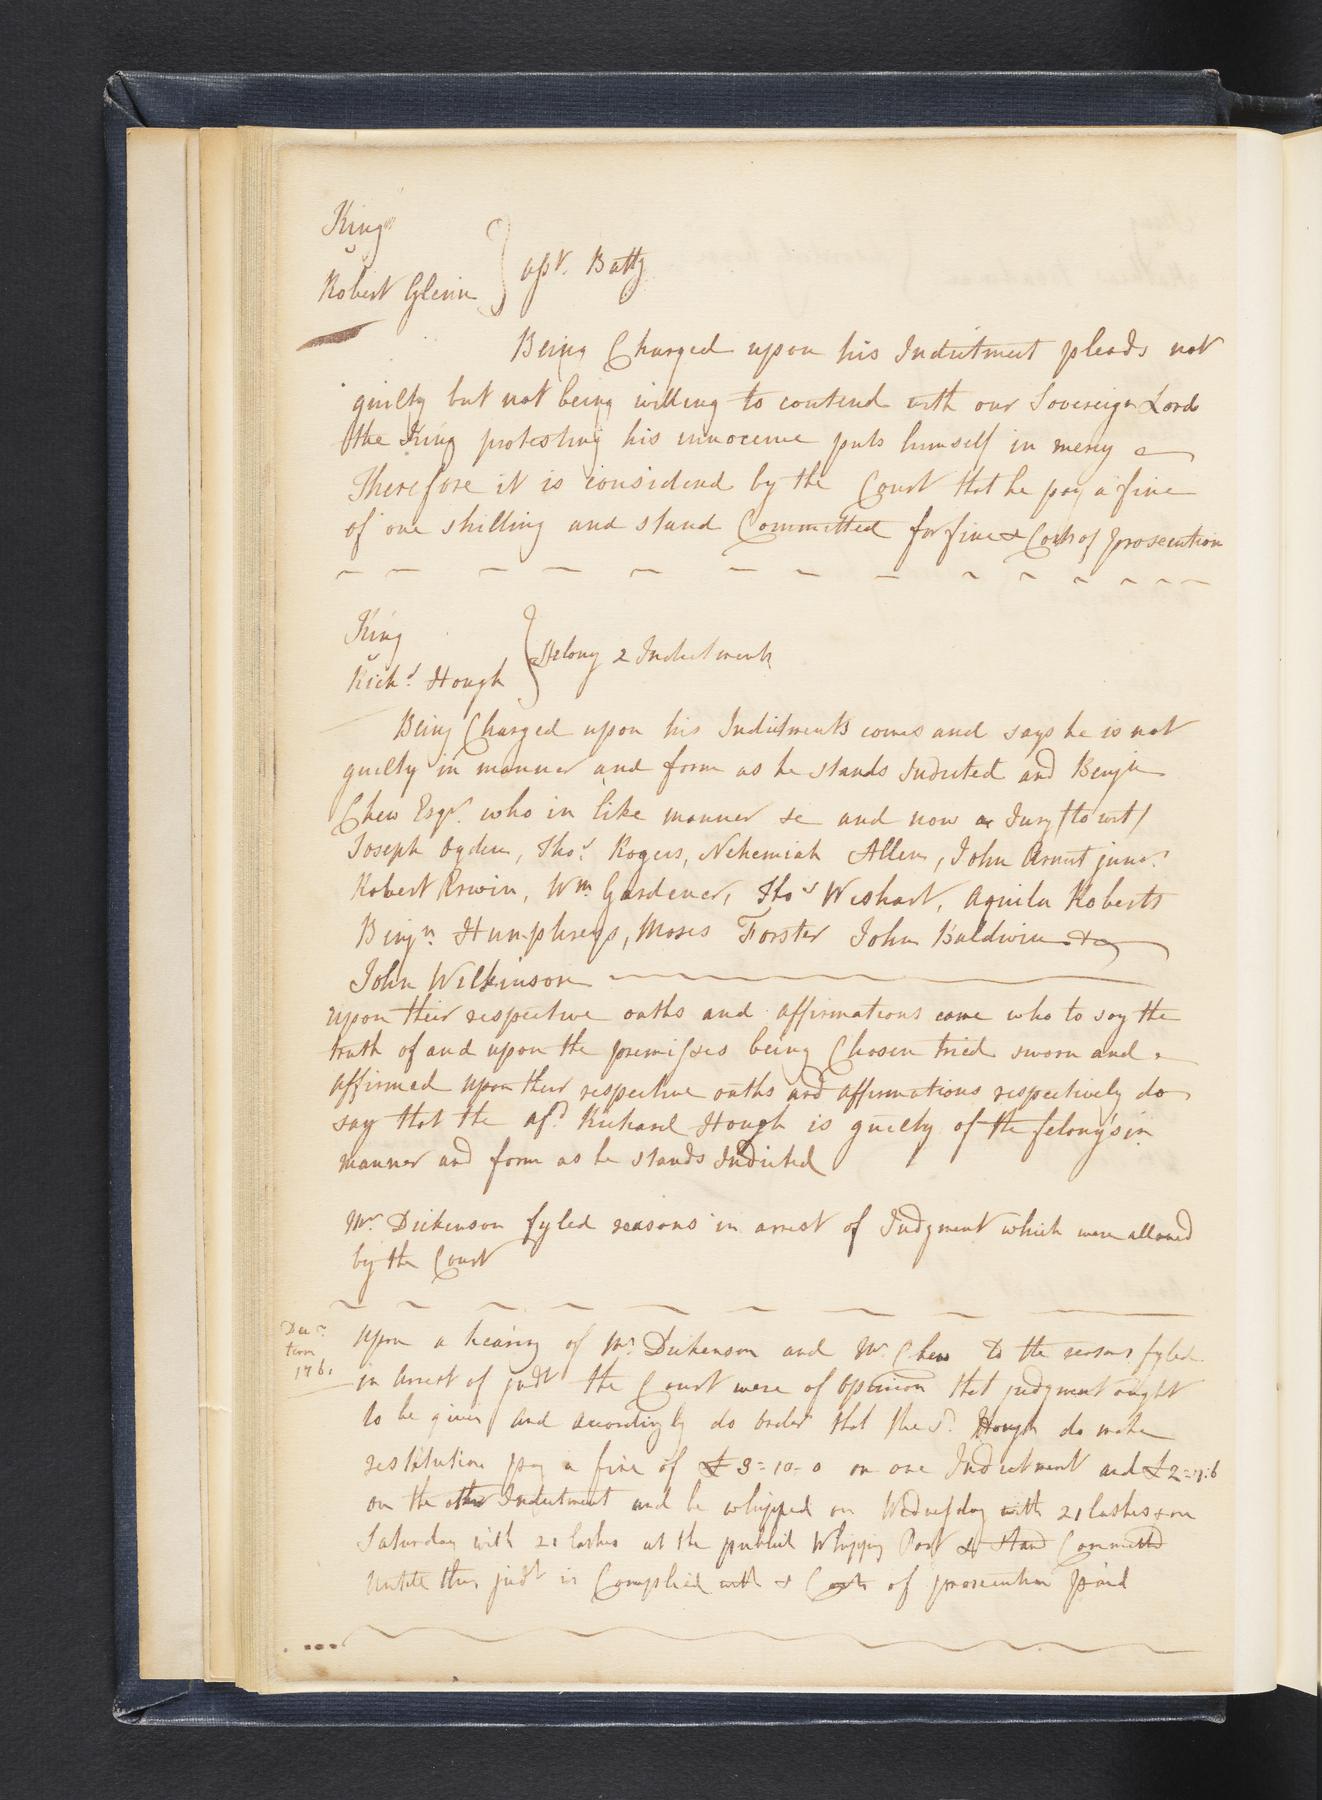 King
v
Robert Glenn } asst. Batty
Being Charged upon his Indictment pleads not
guilty but not being willing to contend with our Sovereign Lord
the King protesting his innocence puts himself in mercy
Therefore it is considered by the Court that he pay a fine
of one shilling and stand Committed for fine & Costs of prosecution
King
v
Richd. Hough } Felony 2 Indictments
Being Charged upon his Indictments comes and says he is not
guilty in manner and form as he stands Indicted and Benjn
Chew Esqr. who in like manner &c and now a Jury (to wit)
Joseph Ogden, Thos. Rogers, Nehemiah Allen, John Arnnt junr.
Robert Erwin, Wm Gardener, Thos Wishart, Aquila Roberts
Benjn. Humphreys, Moses Forster John Baldwin &
John Wilkinson
upon their respective oaths and affirmations came who to say the
truth of and upon the premisses being Chosen tried sworn and
affirmed upon their respective oaths and affirmations respectively do
say that the afd. Richard Hough is guilty of the felonys in
manner and form as he stands Indicted
Mr. Dickenson fyled reasons in arrest of Judgment which were allowed
by the Court
Decr.
term
1761
Upon a hearing of Mr. Dickenson and Mr. Chew to the reasons fyled
in Arrest of judt the Court were of opinion that judgment ought
to be given and accordingly do order that the sd. Hough do make
restitution pay a fine of £3=10=0 on one Indictment and £2
on the other Indictment and be whipped on Wednesday with 21 lashes & on
Saturday with 21 lashes at the publick Whipping Post & stand Committed
untill this judt is Complied with & Costs of prosecution paid